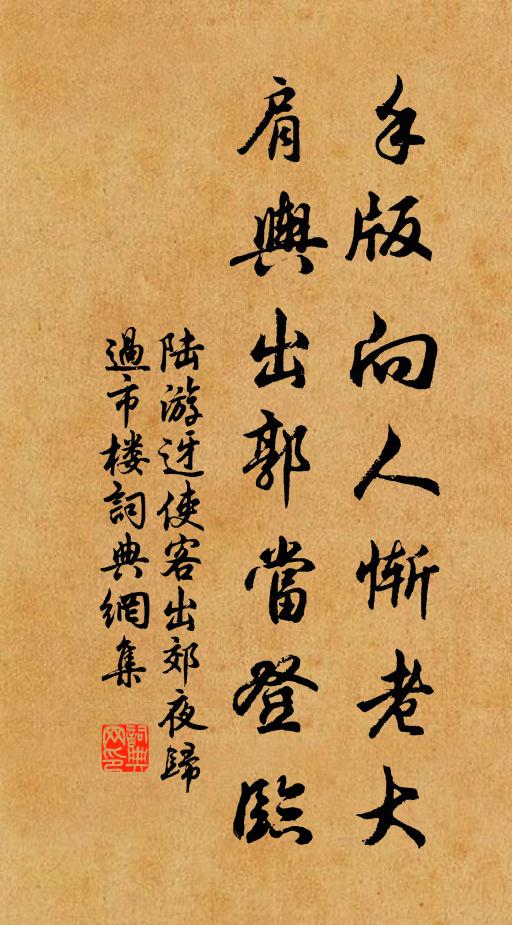 手版向人慚老大
肩輿出郭當登臨
陆游迓使客出郊夜歸
過市楼詞典網集
詞典网印